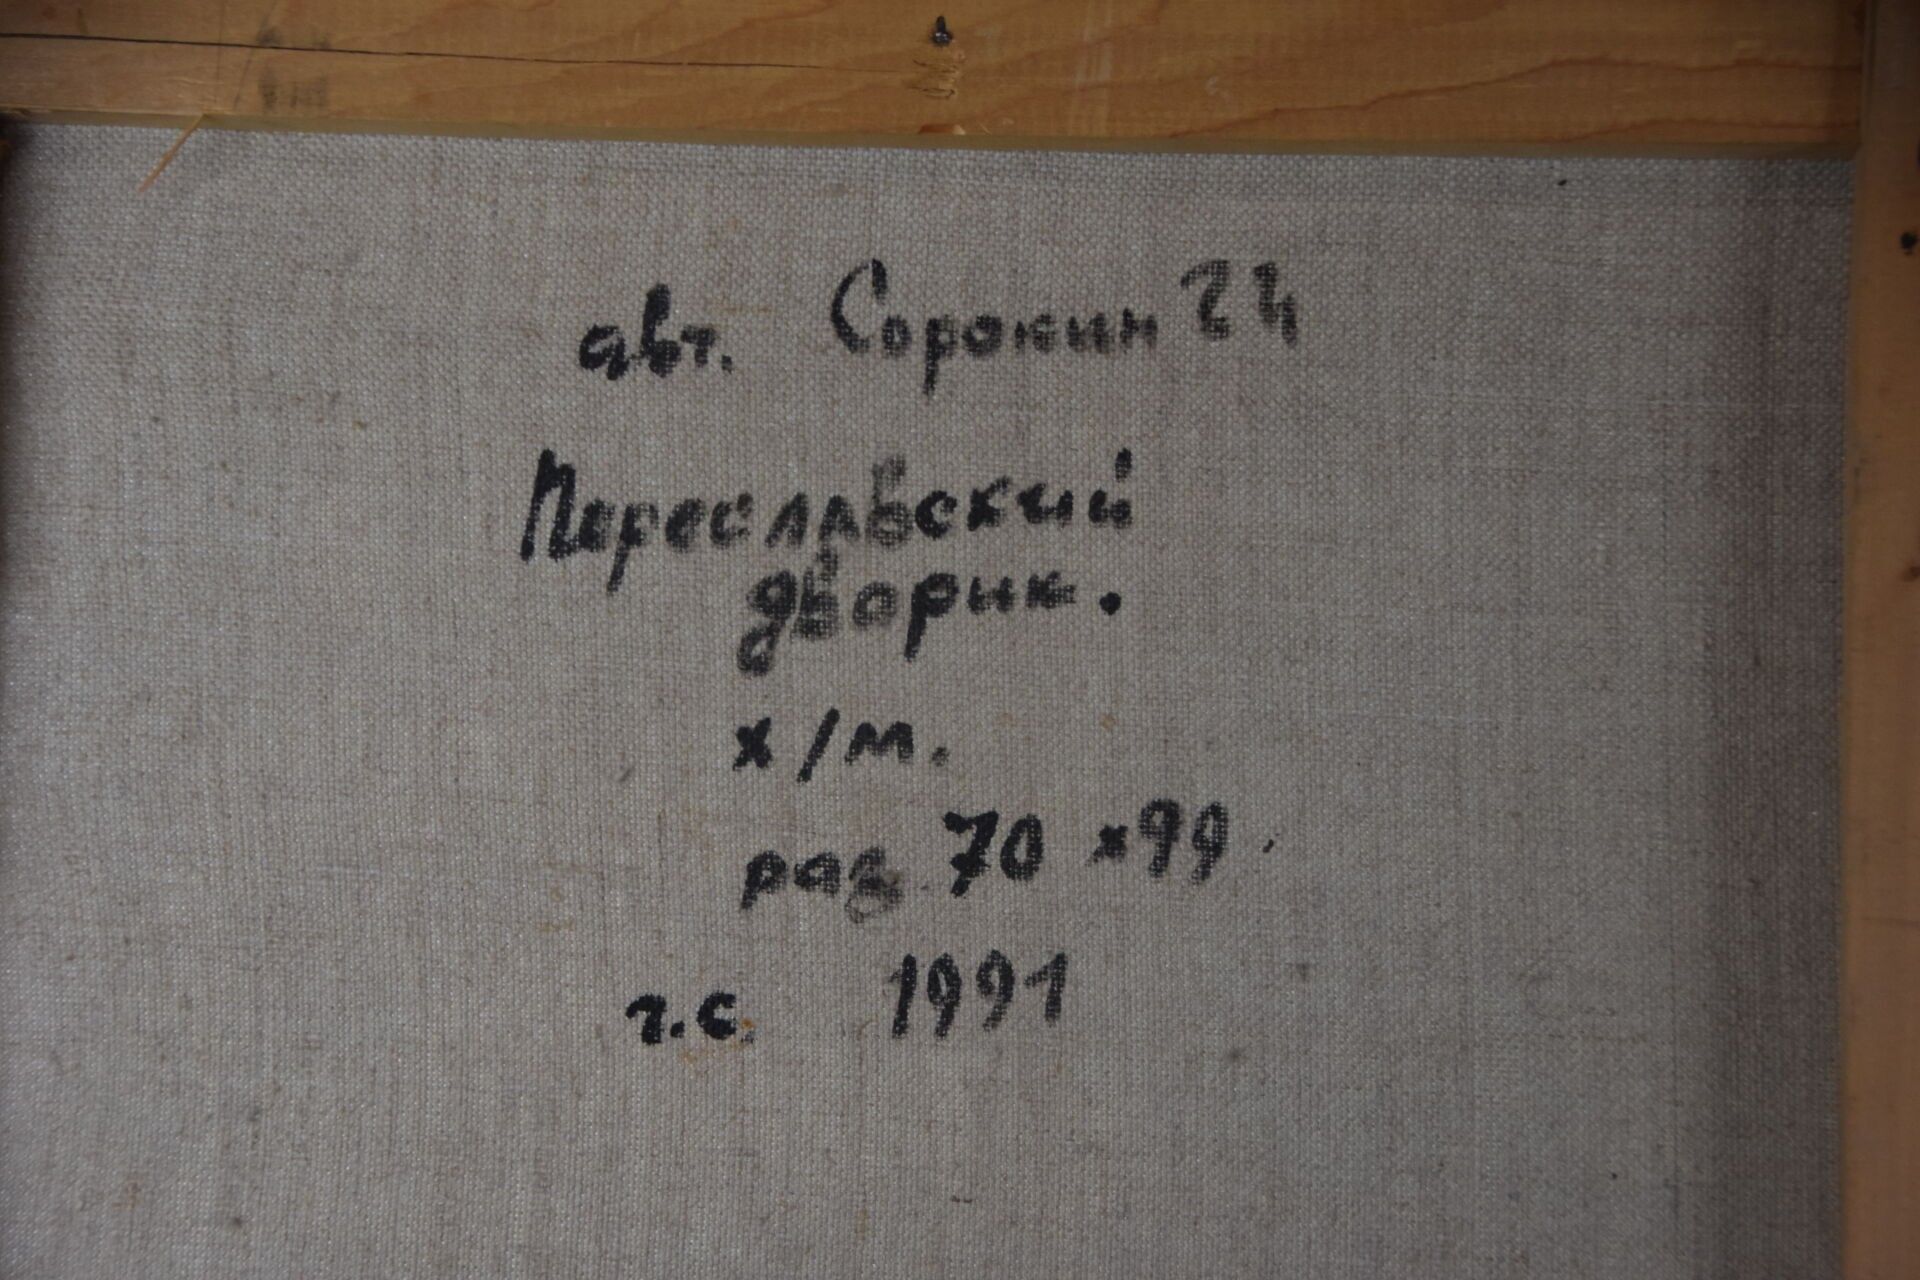 авт. Сорокин 24
Переславский
дворик.
х/м.
раз. 70 х 99.
г.с. 1991